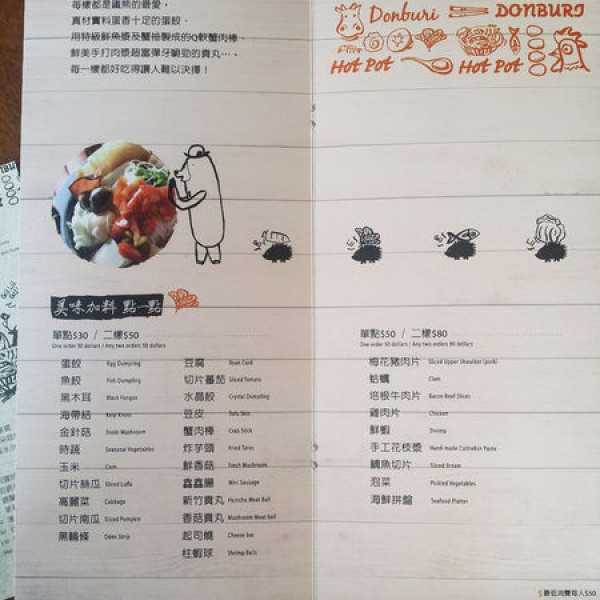 每樣都是鐵熊的最愛，
真材實料蛋香十足的蛋餃、
用特級鮮魚漿及蟹抽製成的Q軟蟹肉棒、
鮮美手打肉漿超富彈牙嚼勁的貢丸⋯，
每一樣都好吃得讓人難以決擇！
Donburi DONBURI
Hot Pot Hot Pot
美味加料 點一點
單點$30 / 二樣$50
One order 30 dollars / Any two orders 50 dollars
蛋餃 Egg Dumpling
魚餃 Fish Dumpling
黑木耳 Black Fungus
海帶結 Kelp Knots
金針菇 Enoki Mushroom
時蔬 Seasonal Vegetables
玉米 Corn
切片絲瓜 Sliced Luffa
高麗菜 Cabbage
切片南瓜 Sliced Pumpkin
黑輪條 Oden Strip
豆腐 Bean Curd
切片蕃茄 Sliced Tomato
水晶餃 Crystal Dumpling
豆皮 Tofu Skin
蟹肉棒 Crab Stick
炸芋頭 Fried Taros
鮮香菇 Fresh Mushroom
鑫鑫腸 Mini Sausage
新竹貢丸 Hsinchu Meat Ball
香菇貢丸 Mushroom Meat Ball
起司燒 Cheese bar
柱蝦球 Shrimp Balls
單點$50 / 二樣$80
One order 50 dollars / Any two orders 80 dollars
梅花豬肉片 Sliced Upper Shoulder (pork)
蛤蠣 Clam
培根牛肉片 Bacon Beef Slices
雞肉片 Chicken
鮮蝦 Shrimp
手工花枝漿 Hand-made Cuttlefish Paste
鯛魚切片 Sliced Bream
泡菜 Pickled Vegetables
海鮮拼盤 Seafood Platter
$最低消費每人$50